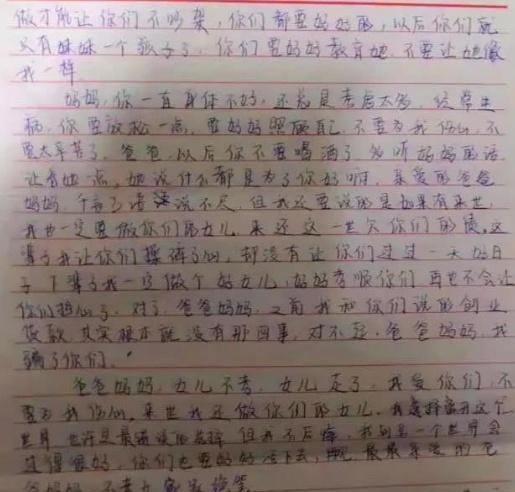 做才能让你们不吵架,你们都要好好的,以后你们就
只有妹妹一个孩子了,你们要好好教育她,不要让她像
我一样。
妈妈,你一直身体不好,还总是考虑太多,经常生
病,你要放松一点,要好好照顾自己,不要为我伤心,不
要太辛苦了,爸爸,以后你不要喝酒了,多听妈妈的话,
让着她点,她说什么都是为了你好啊,亲爱的爸爸
妈妈,千言万语说不尽,但我还要说的是如果有来世,
我也一定要做你们的女儿,来还这一世欠你们的债,这
辈子我让你们操碎了心,却没有让你们过过一天好日
子,下辈子我一定做个好女儿,好好孝顺你们,再也不会让
你们担心了,对了,爸爸妈妈,之前我和你们说的创业
贷款,其实根本就没有那回事,对不起,爸爸妈妈,我
骗了你们。
爸爸妈妈,女儿不孝,女儿走了,我爱你们,不
要为我伤心,来世我还做你们的女儿,我选择离开这个
世界,也许是最错误的选择,但我不后悔,我到另一个世界会
过得很好,你们也要好好活下去,最最亲爱的爸
爸妈妈,不孝女